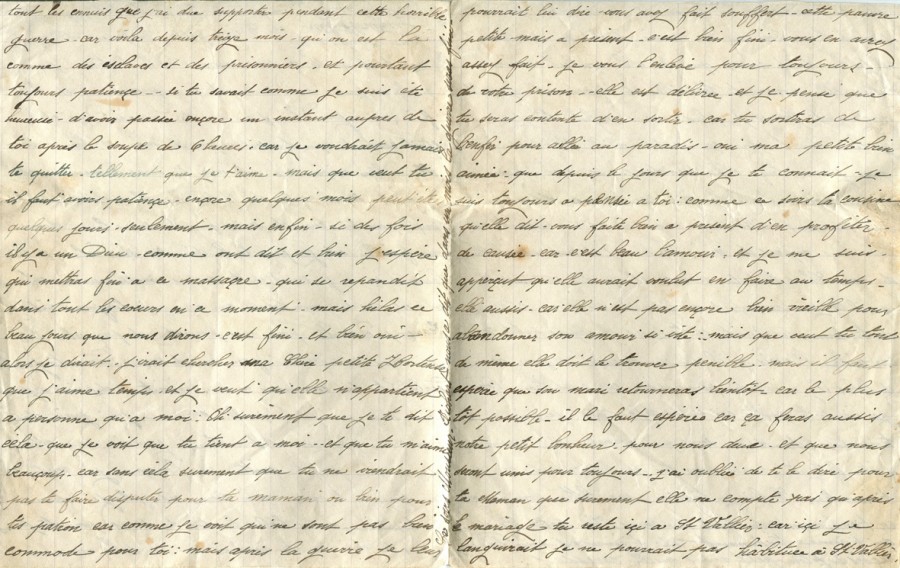 tout les ennuis que j'ai due supporter pendant cette horrible
guerre - car voila depuis treize mois - qui on est la
comme des esclaves et des prisonniers - et pourtant
toujours patience - si tu savait comme je suis été
heureuse - d'avoir passée encore un instant aupres de
toi après la soupe de 6 heures - car je voudrait jamais
te quitter - tellement que je t'aime - mais que veut tu
il faut avoir patience - encore quelques mois peut être
quelques jours - seulement - mais enfin - si des fois
il y a un Dieu - comme ont dit et bien j'espère
qui mettras fin a ce massacre - qui se repandit
dans tout les coeurs en ce moment - mais helas ce
beau jours que nous dirons - c'est fini - et bien oui -
alors je dirait - j'irait chercher ma Chère petite Hortense
que j'aime temps et je veut qu'elle n'appartient
a personne qu'a moi : Oh surement que je te dit
cela - que je voit que tu tient a moi - et que tu m'aime
beaucoup - car sans cela surement que tu ne viendrait
pas te faire disputer pour ta maman ou bien pour
tes patron car comme je voit qui ne sont pas bien
commode pour toi : mais après la guerre je leur
pourrait lui dire - vous avez fait souffert - cette pauvre
petite mais a présent - c'est bien fini - vous en avez
assez fait - je vous l'enlève pour toujours -
de votre prison - elle est délivrée - et je pense que
tu seras contente d'en sortir - car tu sortiras de
l'enfer pour allée au paradis - oui ma petite bien
aimée - que depuis le jours que je te connait - je
suis toujours a pensée a toi : comme ce soir la cousine
qu'elle dit - vous faite bien a present d'en profiter
de causée - car c'est beau l'amour - et je me suis -
apperçut qu'elle aurait voulut en faire au temps -
elle aussis - car elle n'est pas encore bien vieille pour
abandonner son amour si vite : mais que veut tu tout
de même elle doit le trouver penible - mais il faut
espère que son mari retourneras bientôt - car le plus
tôt possible - il le faut espère car ça feras aussis
notre petit bonheur - pour nous deux - et que nous
sront unis pour toujours - j'ai oublié de te le dire pour
ta Maman que surement elle ne compte pas qu'après
le mariage tu reste içi a St Vallier - car içi je
languirait je ne pourrait pas hâbituée a St Vallier.